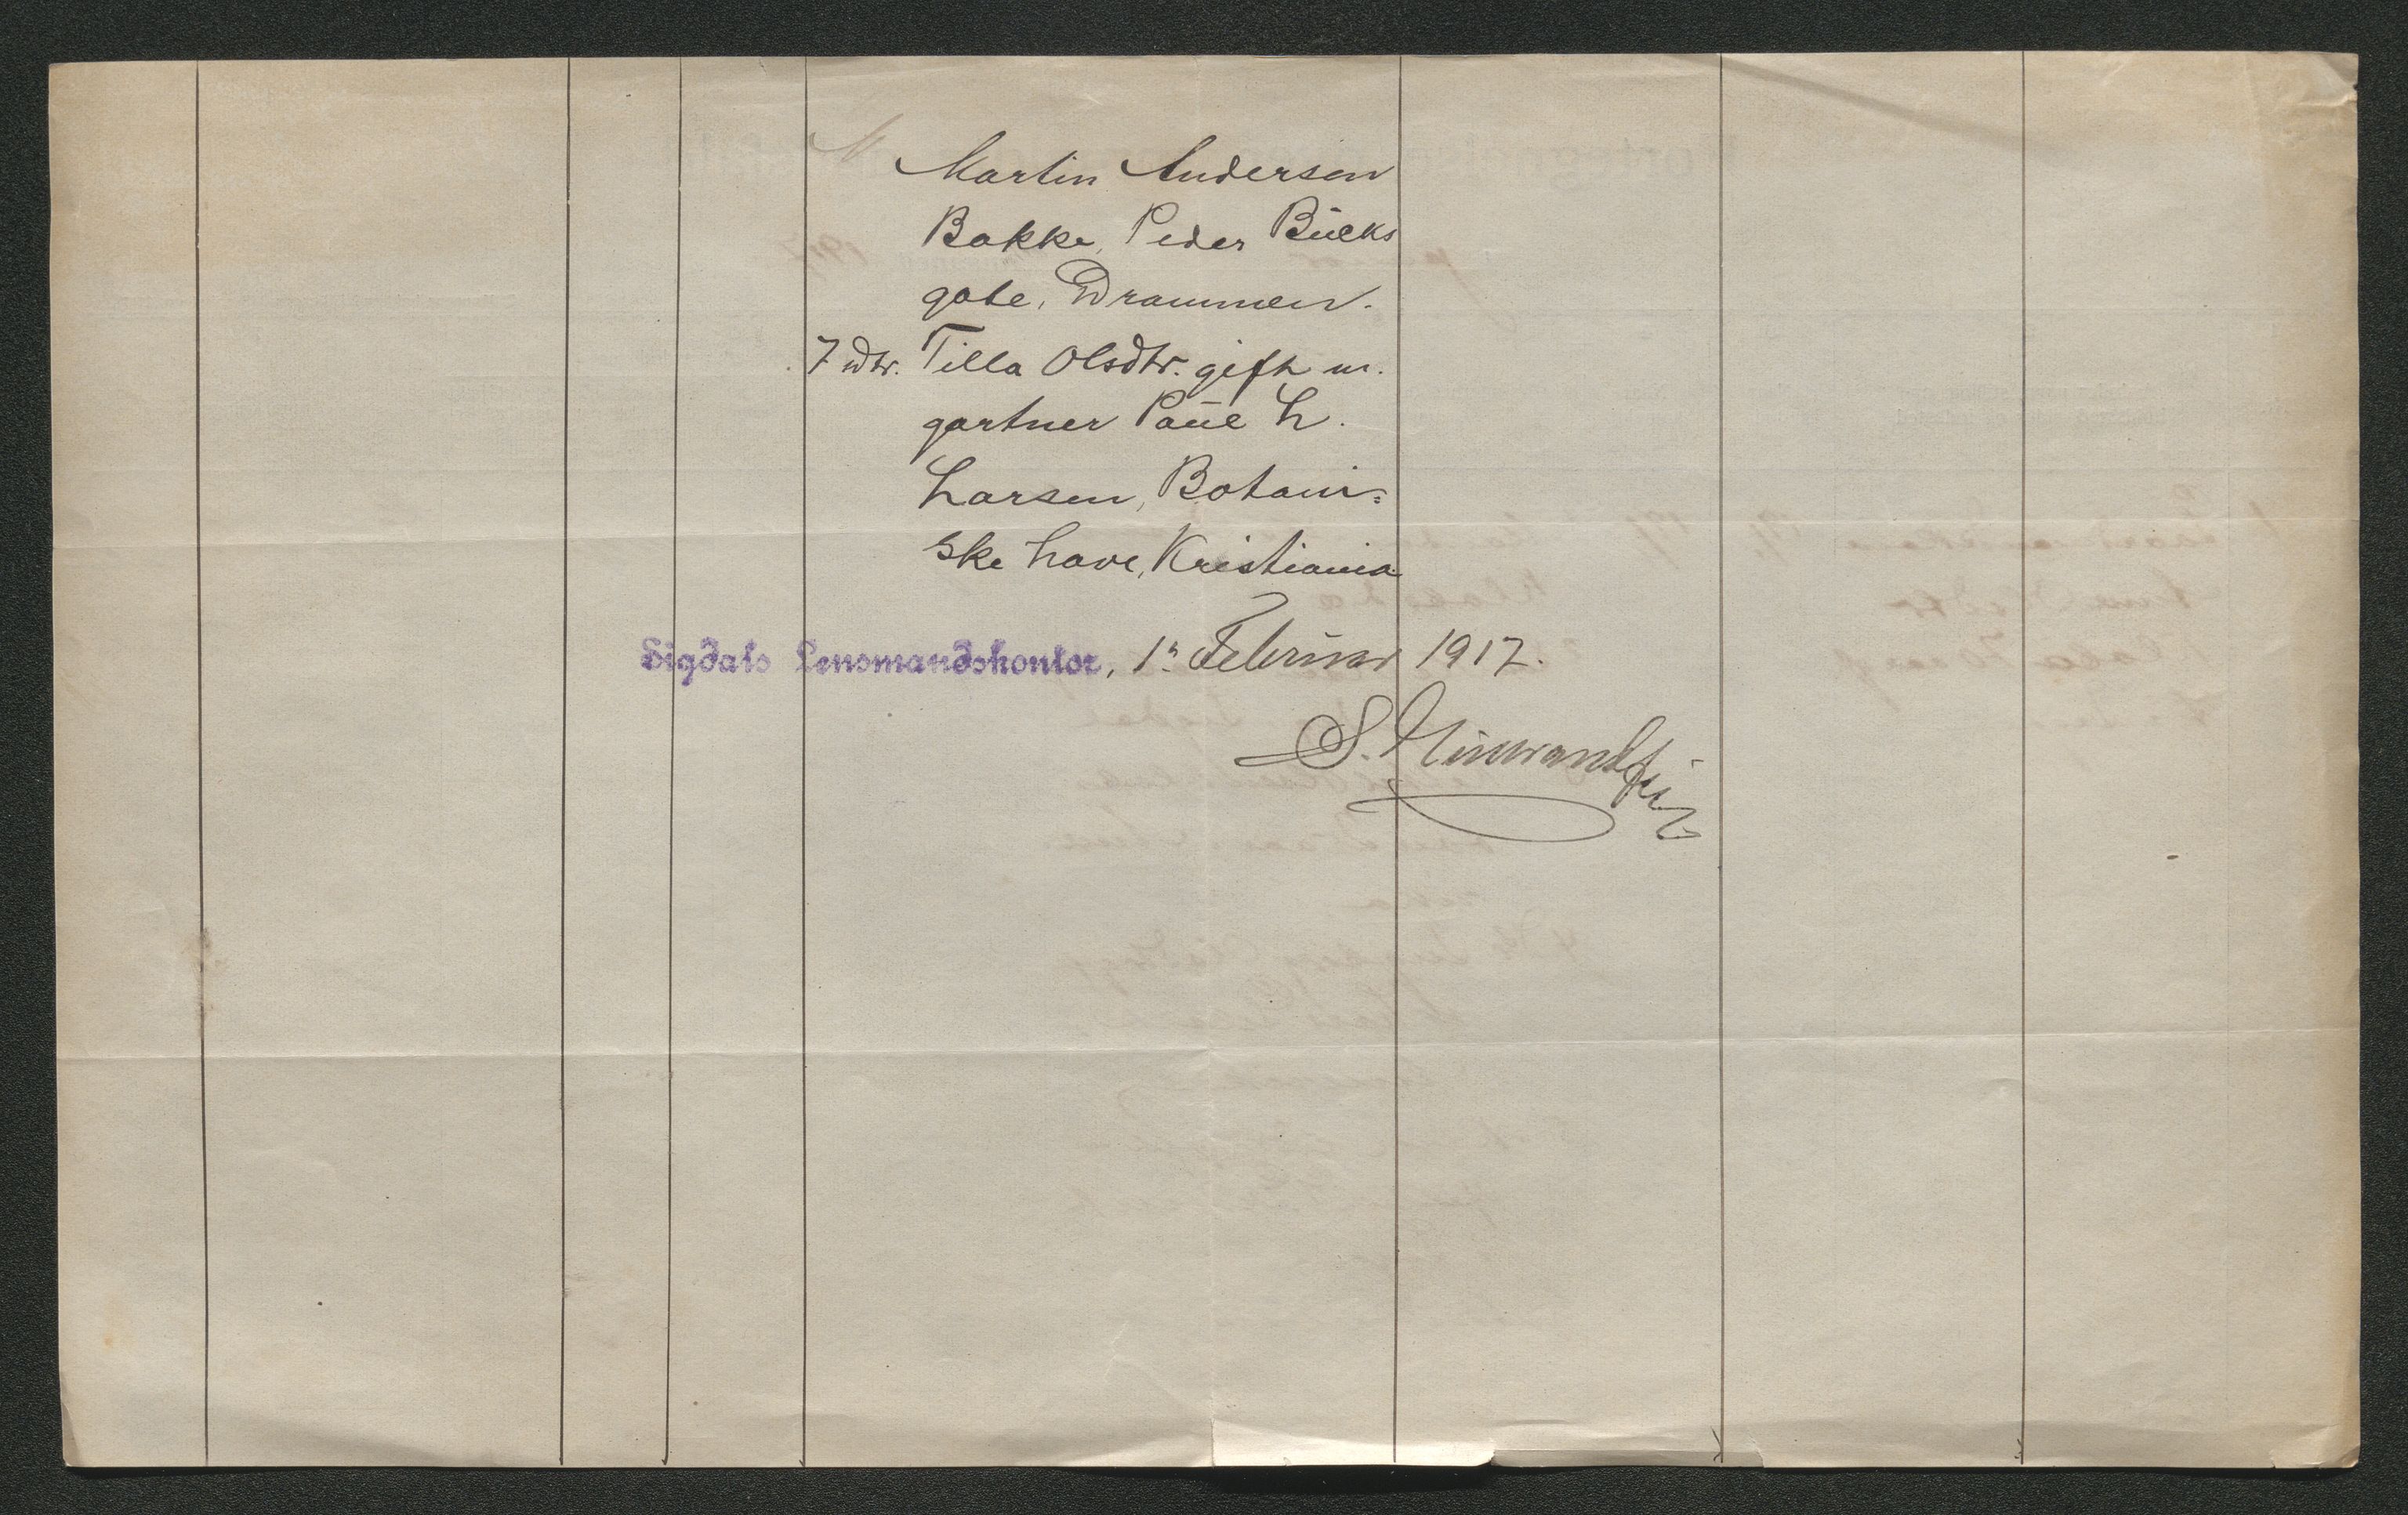 Martin Andersen
Bakke, Peder Bücks
gate, Drammen.
7 Dtr. Tilla Olsdtr. gift m.
gartner Paül L.
Larsen, Botani=
ske have, Kristiania
Sigdals Lensmandskontor, 1ˢ Februar 1917.
S.